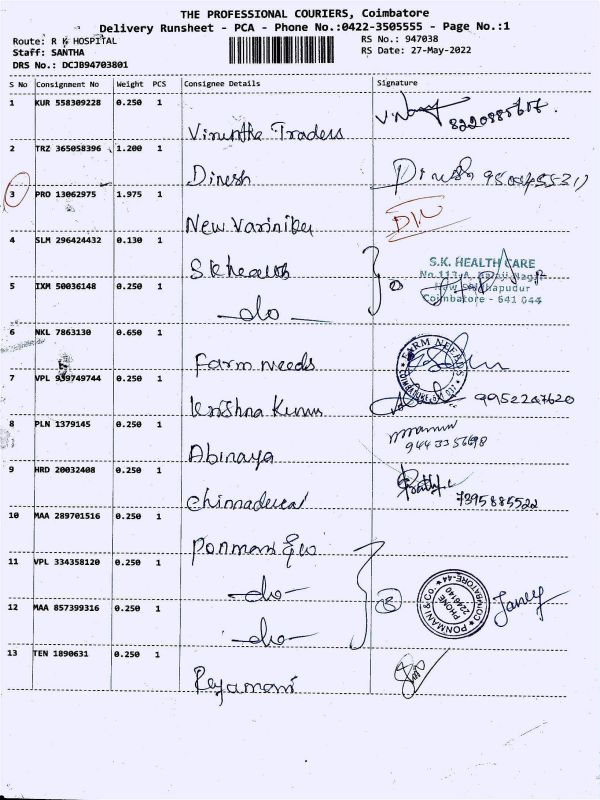 THE PROFESSIONAL COURIERS, Coimbatore
Delivery Runsheet - PCA - Phone No.:0422-3505555 - Page No.:1
Route: R K HOSPITAL RS No.: 947038
Staff: SANTHA RS Date: 27-May-2022
DRS No.: DCJB94703801
S No Consignment No Weight PCS Consignee Details Signature
1 KUR 558309228 0.250 1
Traders
2 TRZ 365058396 1.200 1
Dinesh Dinesh
3 PRO 13062975 1.975 1
New
4 SLM 296424432 0.130 1
S.K. HEALTH CARE
SK health
5 IXM 50036148 0.250 1
Coimbatore - 641 044
-do-
6 NKL 7863130 0.650 1
FARM NEEDS
Farm needs
7 VPL 939749744 0.250 1
Krishna Kumar 9952247620
8 PLN 1379145 0.250 1
Abinaya
9 HRD 20032408 0.250 1
Chinnadurai 7395885522
10 MAA 289701516 0.250 1
Ponmani & Co
11 VPL 334358120 0.250 1
-do-
PONMANI & CO. COIMBATORE-44
PHONE 2246140
12 MAA 857399316 0.250 1
-do-
13 TEN 1890631 0.250 1
Rajamani